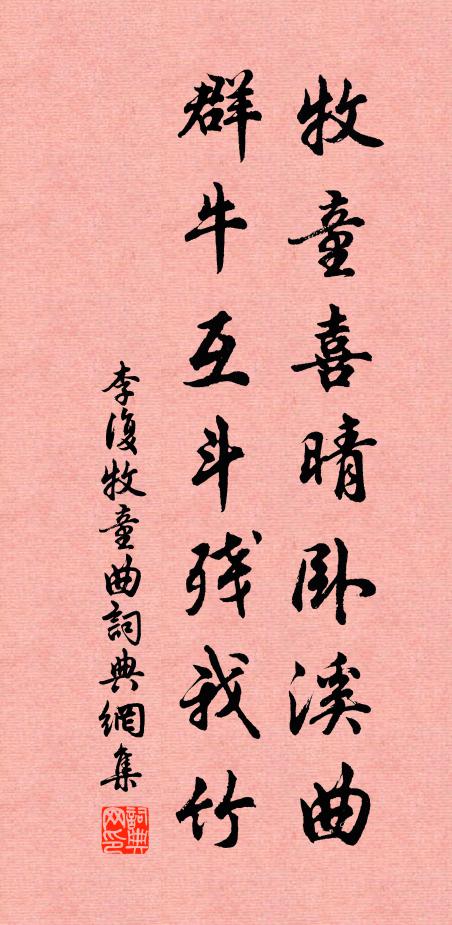 牧童喜晴卧溪曲
群牛互斗残我竹
李復牧童曲詞典網集
詞典网印